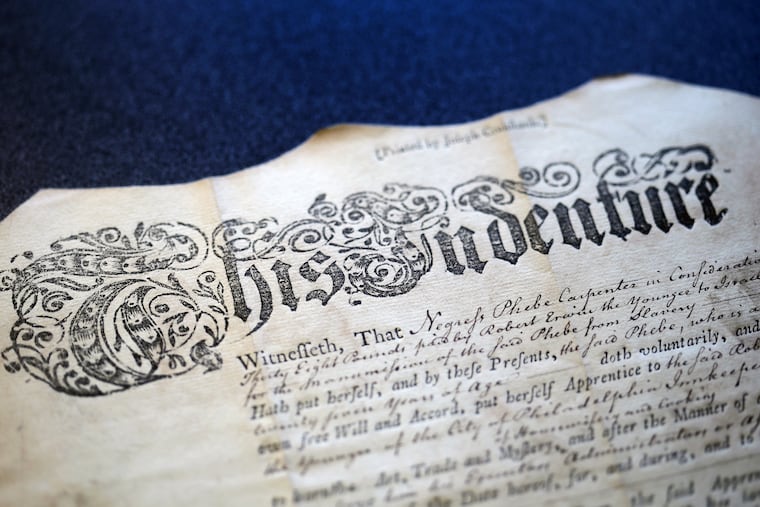 [Printed by Joseph Crukshank.]
This Indenture
Witnesseth, That Negress Phebe Carpenter in Consideration
Thirty Eight Pounds paid by Robert Erwin the Younger to Israel
for the Manumission of the said Phebe from Slavery
Hath put herself, and by these Presents, the said Phebe, who is a
twenty five Years of Age doth voluntarily, and
own free Will and Accord, put herself Apprentice to the said Rob
the Younger of the City of Philadelphia Innkeeper
of Housewifery and Cooking
Art, Trade and Mystery, and after the Manner of
Executors Administrators or
the Date hereof, for, and during, and to
the said Appren